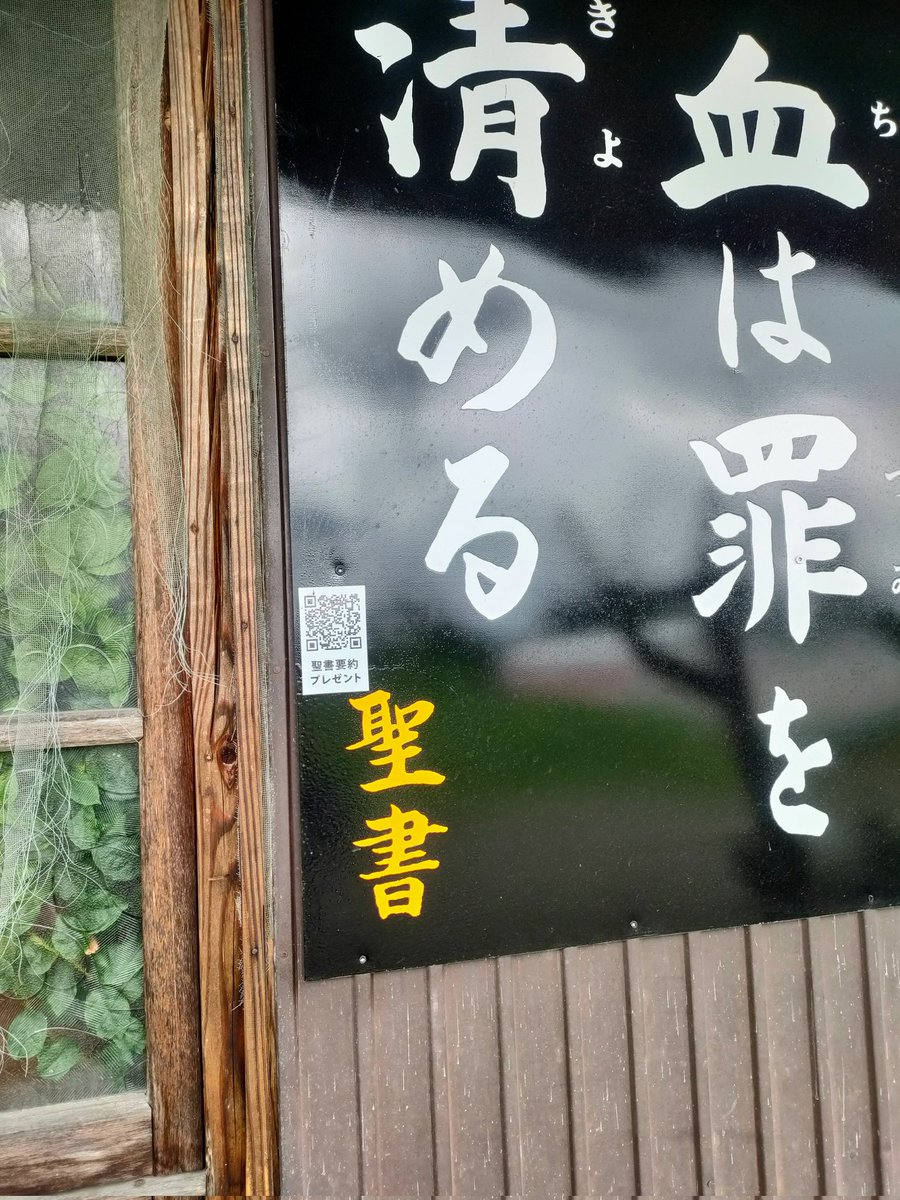 血は罪を
清める
聖書
聖書要約
プレゼント